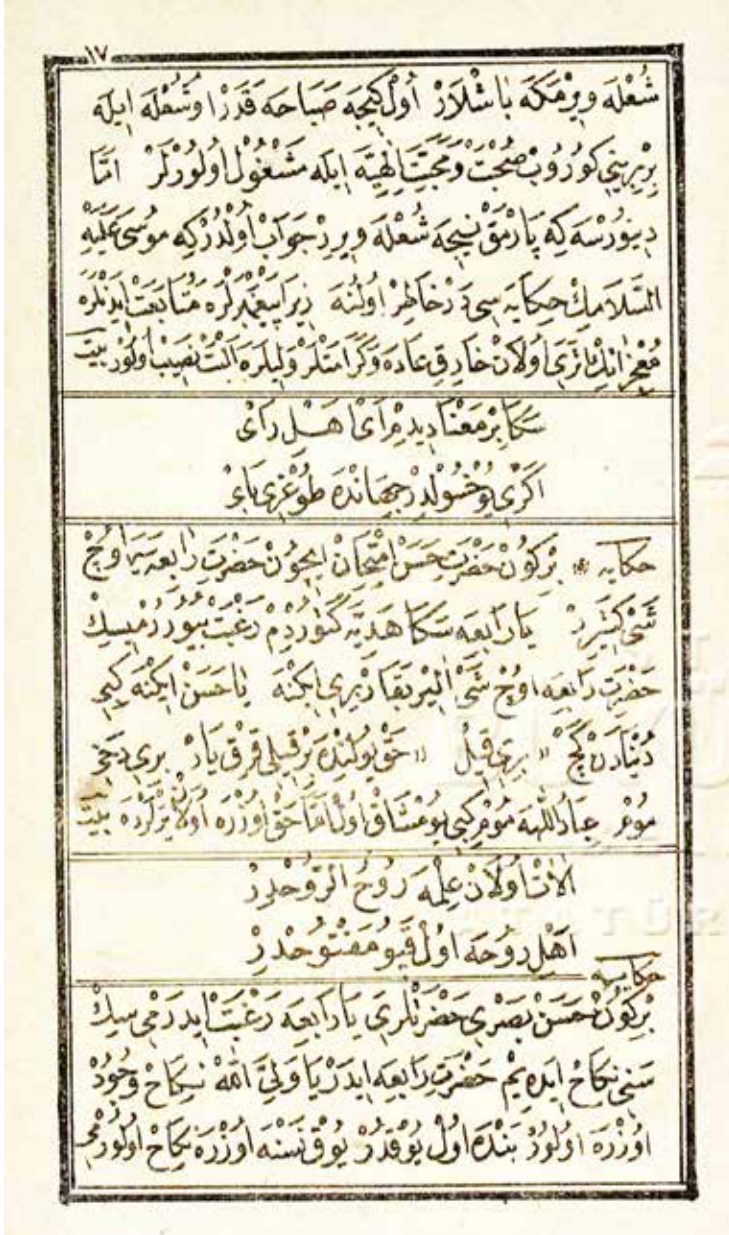 ١٧
شُعْلَه وِيرْمَكَه بَاشْلَارْ أُولْ كِيجَه صَبَاحَه قَدَرْ اُو شُعْلَه اِيلَه
بِرْبِرِينِي كُورُوبْ صُحْبَتْ وَمَحَبَّتِ اِلٰهِيَّه اِيلَه مَشْغُولْ اُولُورْلَرْ اَمَّا
دِينُورْسَه كِه پَارْمَقْ نِيجَه شُعْلَه وِيرِرْ جَوَابْ اُولْدُرْ كِه مُوسَى عَلَيْهِ
السَّلَامِكْ حِكَايَه سِي دَرْ خَاطِرْ اُولُنَه زِيرَا پَيْغَمْبَرْلَرَه مُتَابَعَتْ اِيدَنْلَرَه
مُعْجِزَاتِكْ اُولَانْ خَارِقِ عَادَه وَكَرَامَتْلَرْ وَلِيلَرَه اَلْبَتْ نَصِيبْ اُولُورْ بيت
سَكَا بِرْ مَعْنَا دِيدِمْ اَىْ اَهْلِ رَاىْ
اَكْرِى يُوخْسُولْدِرْ جِهَانْدَه طُوغْرِى بَاىْ
حكايه بِرْكُونْ حَضْرَتِ حَسَنْ اِمْتِحَانْ اِيچُونْ حَضْرَتِ رَابِعَه يَه اُوچْ
شَىْ كَتِيرِرْ يَا رَابِعَه سَكَا هَدِيَّه كَتُورْدِمْ رَغْبَتْ بُيُورُرْمِيسِكْ
حَضْرَتِ رَابِعَه اُوچْ شَىْ اَلِيرْ بَقَارْ بِرِى اِيكْنَه يَا حَسَنْ اِيكْنَه كِبِى
دُنْيَادَنْ كَچْ بِرِى قِيلْ حَقْ يُولِنْدَه بِرْ قِيلِى قِرْقْ يَارْ بِرِى دَخِى
مُومْ عِبَادُ اللهَه مُومْ كِبِى يُومْشَاقْ اُولْ اَمَّا حَقْ اُوزْرَه اُولَانْ يَرْلَرْدَه بيت
اٰلَاتْ اُولَانْ عِلْمَه رُوحُ الرُّوحْدِرْ
اَهْلِ رُوحَه اُولْ قَپُو مَفْتُوحْدِرْ
حكايه
بِرْكُونْ حَسَنْ بَصْرِى حَضْرَتْلَرِى يَا رَابِعَه رَغْبَتْ اِيدَرْمِى سِكْ
سَنِى نِكَاحْ اِيدَه يِمْ حَضْرَتِ رَابِعَه اِيدَرْ يَا وَلِىَّ اللهْ نِكَاحْ وُجُودْ
اُوزْرَه اُولُورْ بَنْدَه اُولْ يُوقْدُرْ يُوقْ نَسْنَه اُوزْرَه نِكَاحْ اُولُورْمِى